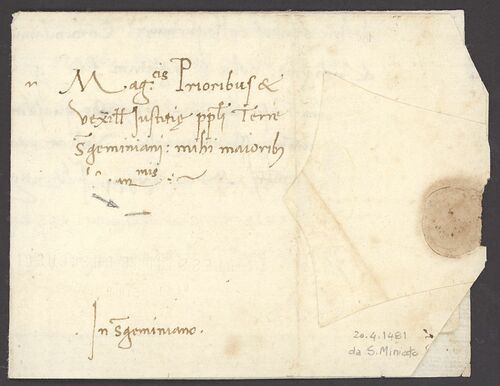 Mag.cis Prioribus &
vexill Justitię ppli Terre
S geminiani: mihi maiorib
mis
In Sgeminiano.
20.4.1481
da S. Miniato